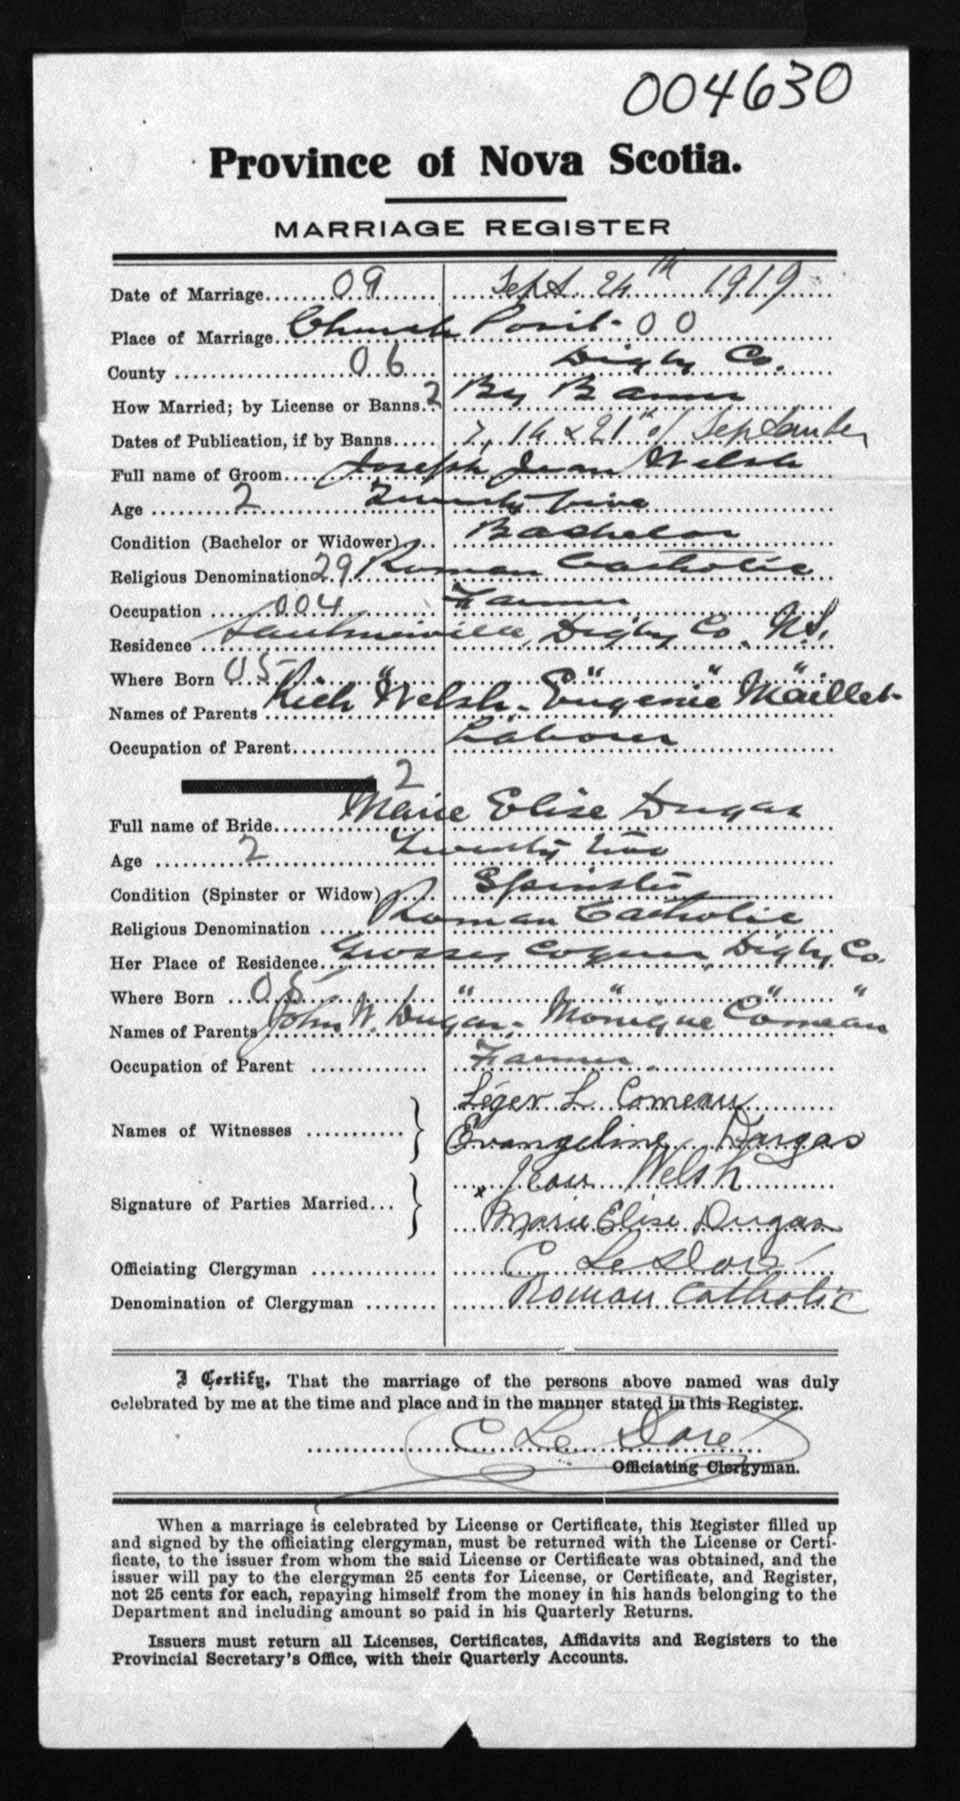 004630
Province of Nova Scotia.
MARRIAGE REGISTER
Date of Marriage 09 Sept. 24th 1919
Place of Marriage Church Point 00
County 06 Digby Co.
How Married; by License or Banns 2 By Banns
Dates of Publication, if by Banns 7, 14 & 21st of September
Full name of Groom Joseph Jean Welsh
Age 2 Twenty five
Condition (Bachelor or Widower) Bachelor
Religious Denomination 29 Roman Catholic
Occupation 004 Farmer
Residence Saulnierville, Digby Co. N.S.
Where Born 05 " " " "
Names of Parents Rich Welsh - Eugenie Maillet
Occupation of Parent Labourer
2
Full name of Bride Marie Elise Dugas
Age 2 Twenty two
Condition (Spinster or Widow) Spinster
Religious Denomination Roman Catholic
Her Place of Residence Grosses Coques, Digby Co.
Where Born 05 " " " "
Names of Parents John W. Dugas, Monique Comeau
Occupation of Parent Farmer
Names of Witnesses } Léger L. Comeau
Evangeline Dargas
Signature of Parties Married } x Jean Welsh
Marie Elise Dugas
Officiating Clergyman C Le Doré
Denomination of Clergyman Roman Catholic
I Certify, That the marriage of the persons above named was duly
celebrated by me at the time and place and in the manner stated in this Register.
C Le Doré
Officiating Clergyman.
When a marriage is celebrated by License or Certificate, this Register filled up
and signed by the officiating clergyman, must be returned with the License or Certi-
ficate, to the issuer from whom the said License or Certificate was obtained, and the
issuer will pay to the clergyman 25 cents for License, or Certificate, and Register,
not 25 cents for each, repaying himself from the money in his hands belonging to the
Department and including amount so paid in his Quarterly Returns.
Issuers must return all Licenses, Certificates, Affidavits and Registers to the
Provincial Secretary's Office, with their Quarterly Accounts.